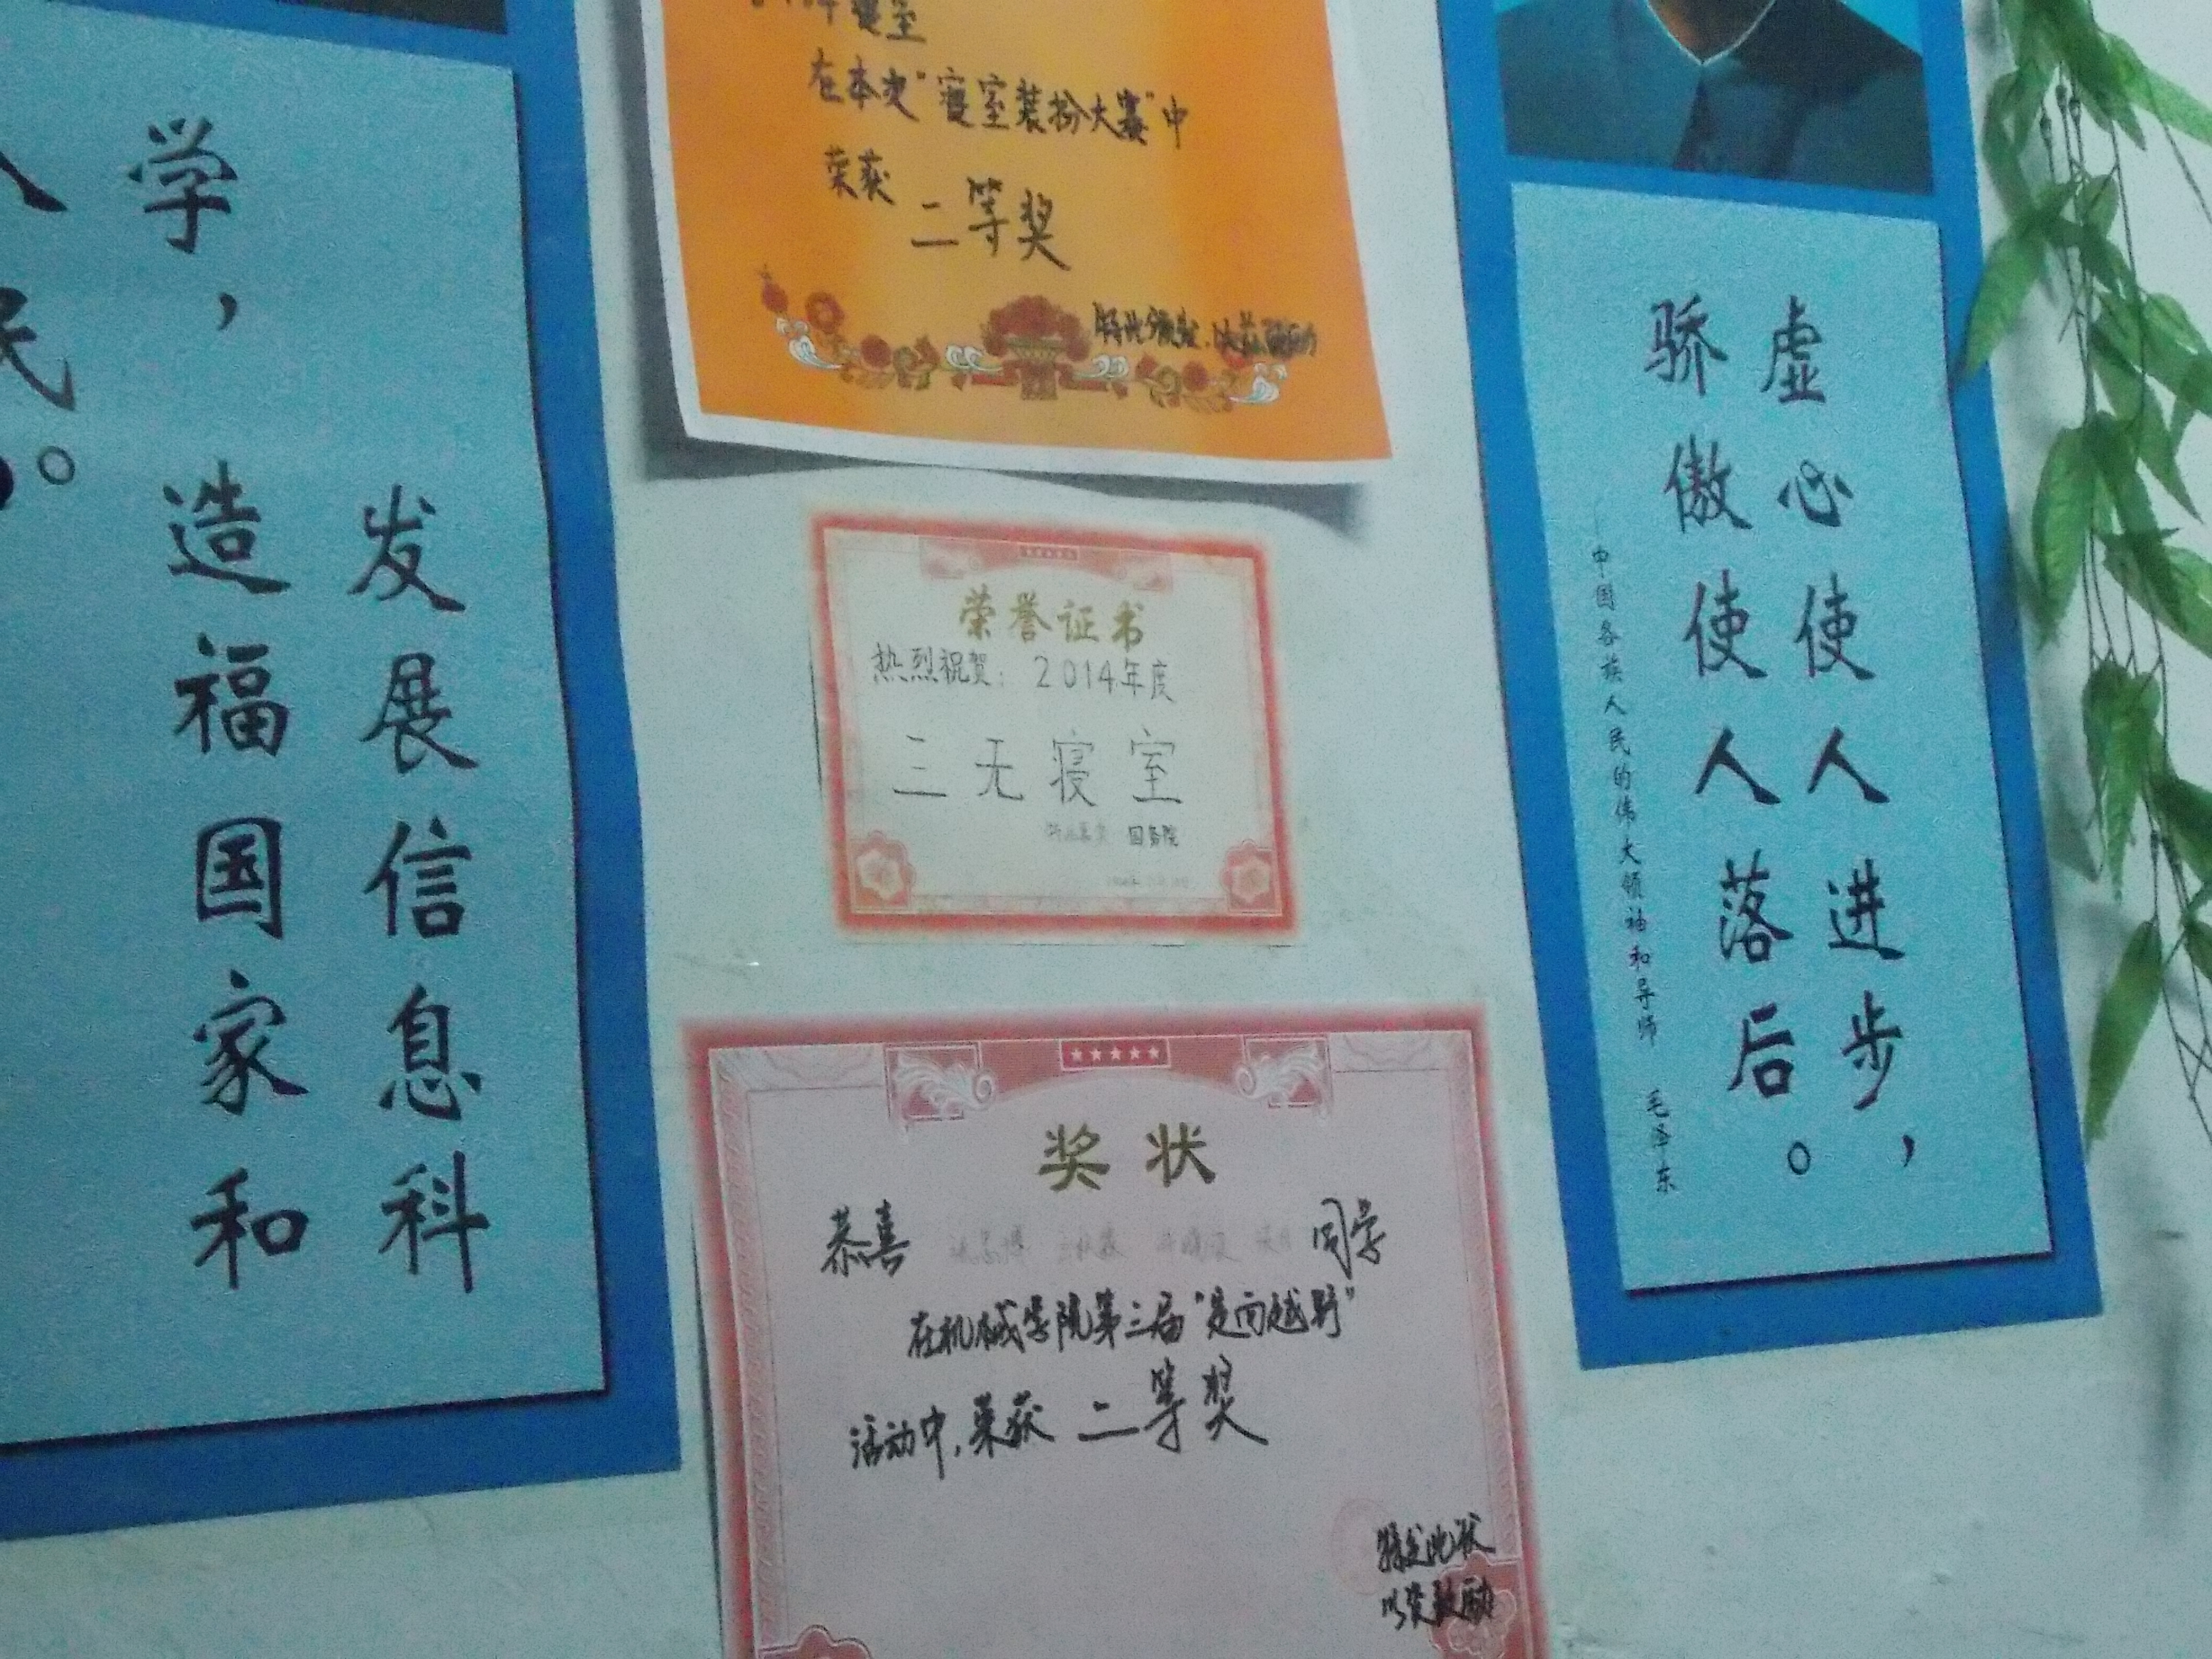 发展信息科
学，造福国家和
人民。
寝室
在本次"寝室装扮大赛"中
荣获
二等奖
特此颁发，以兹鼓励
荣誉证书
热烈祝贺：2014年度
三无寝室
国务院
奖状
恭喜
同学
在机械学院第三届"定向越野"
活动中，荣获 二等奖
特发此状
以资鼓励
虚心使人进步，
骄傲使人落后。
中国各族人民的伟大领袖和导师 毛泽东